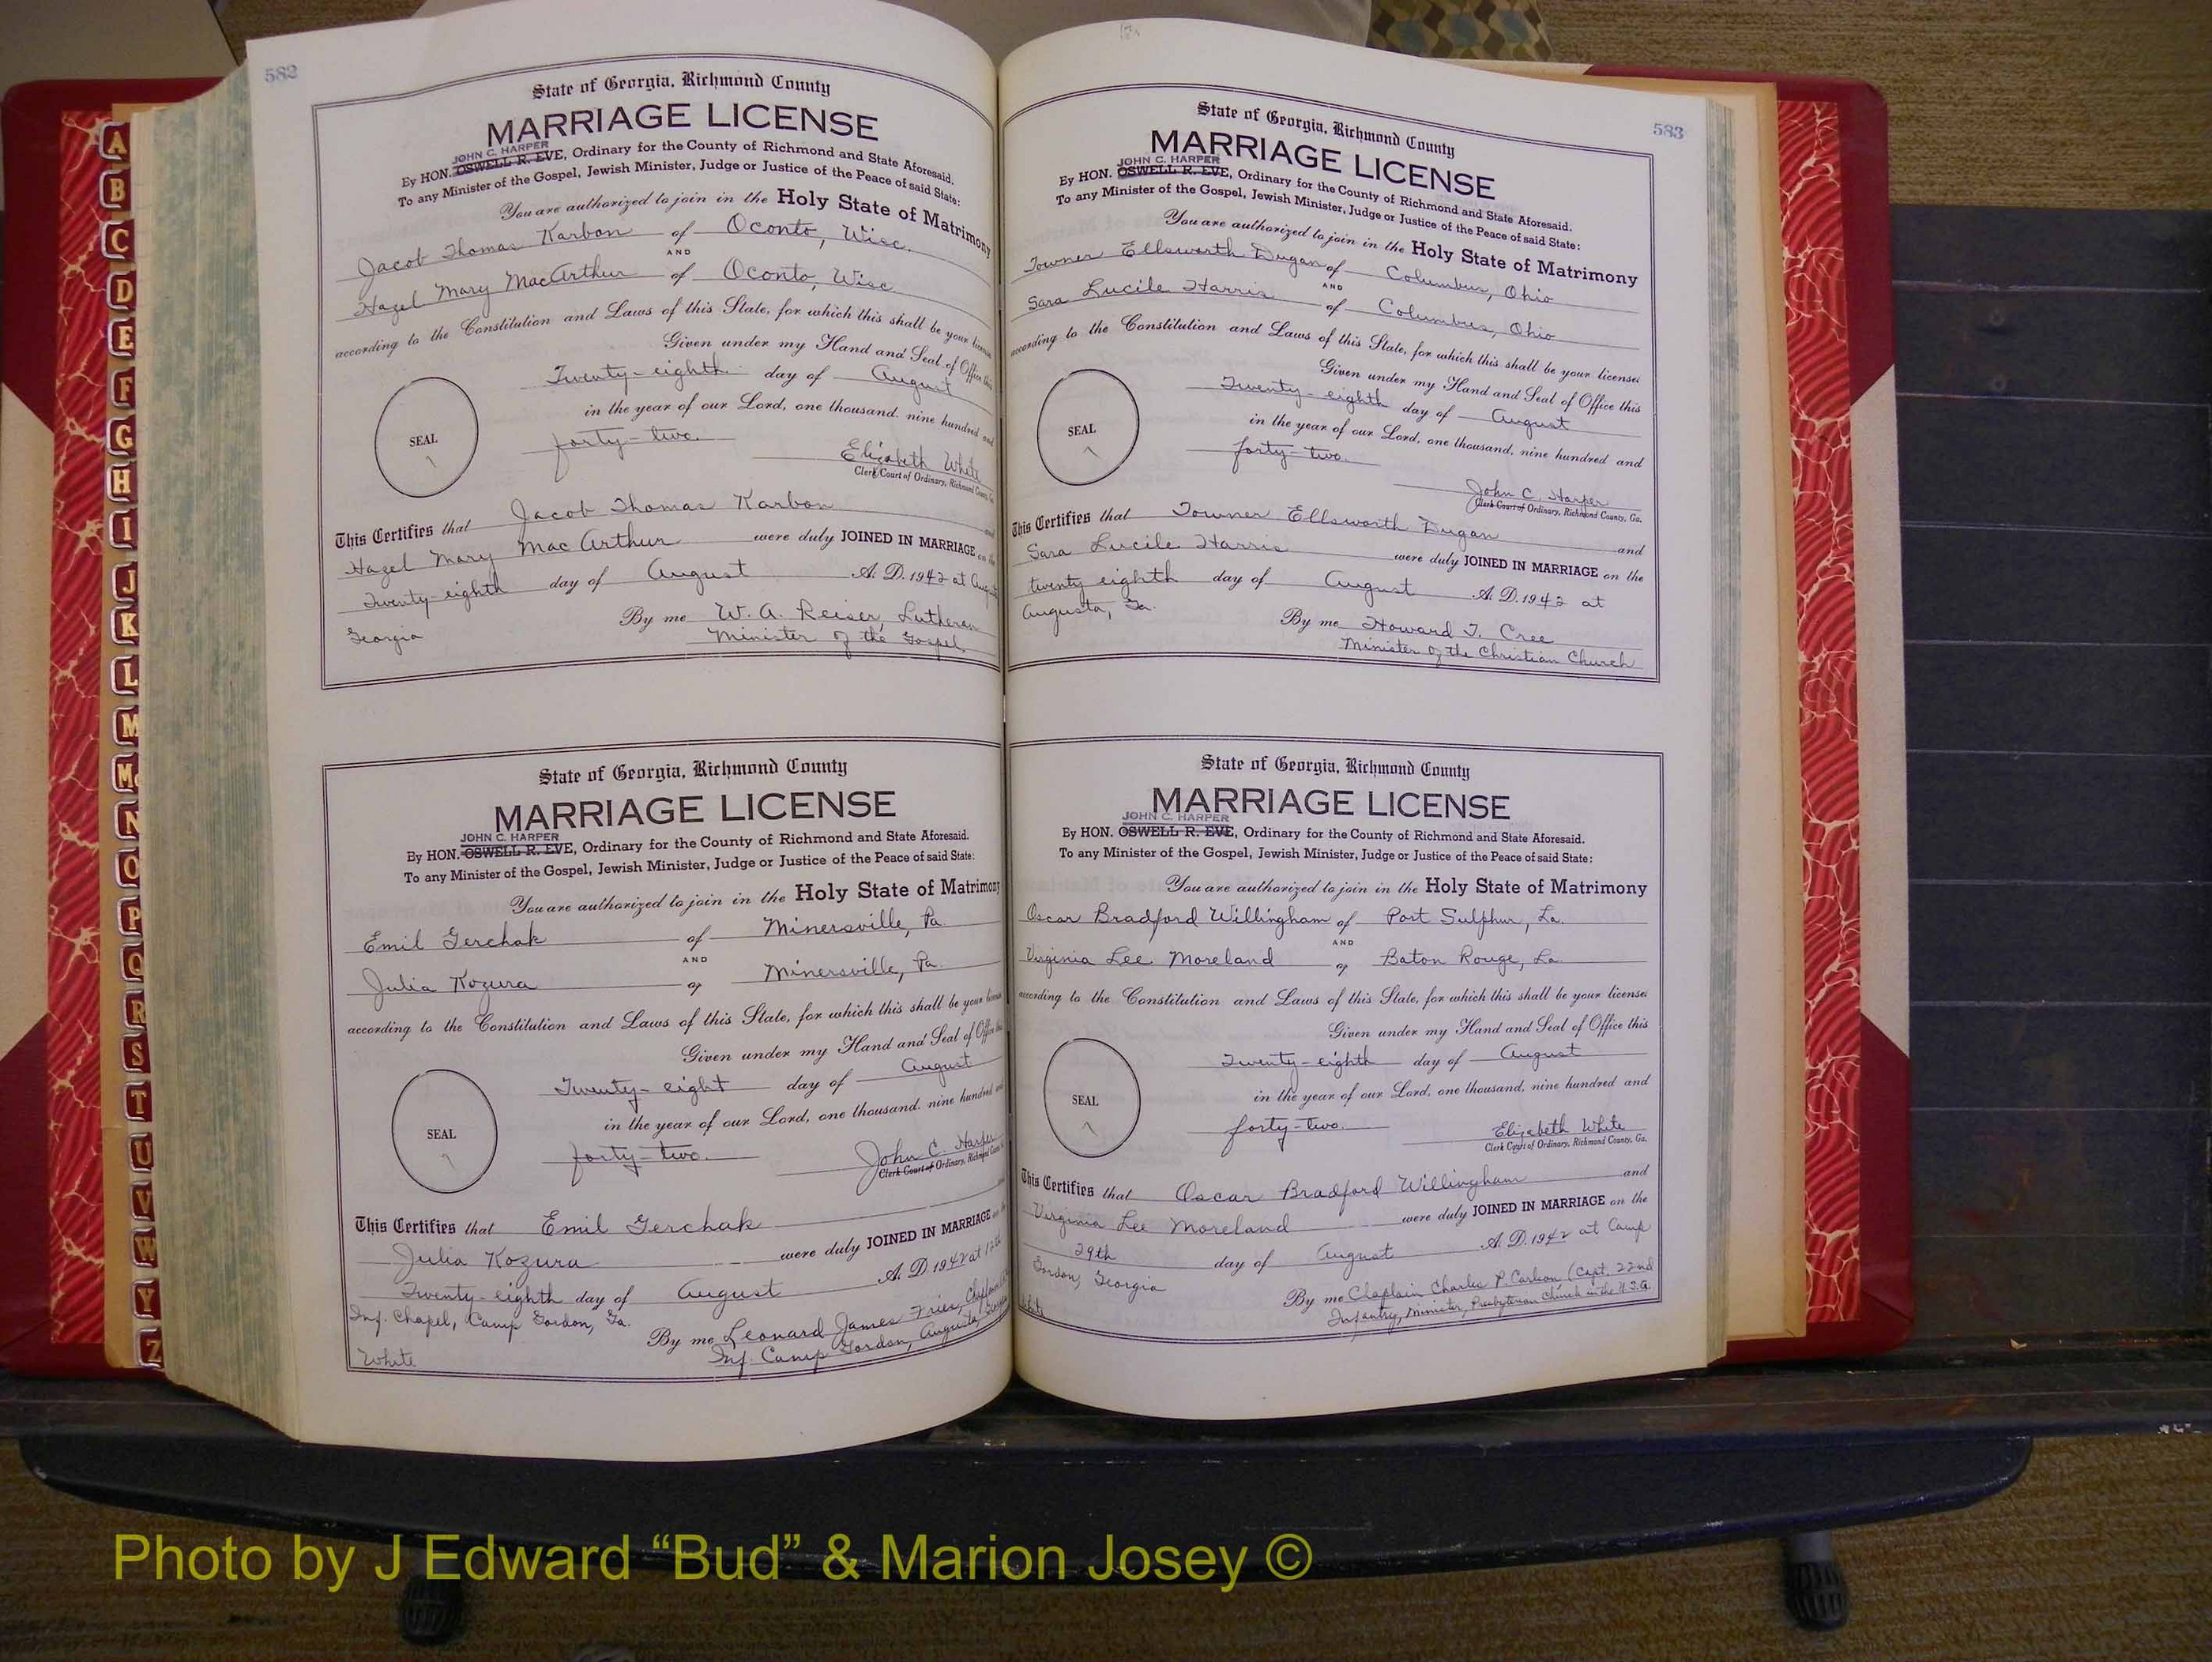 582
State of Georgia, Richmond County
MARRIAGE LICENSE
JOHN C. HARPER
By HON. OSWELL R. EVE, Ordinary for the County of Richmond and State Aforesaid.
To any Minister of the Gospel, Jewish Minister, Judge or Justice of the Peace of said State:
You are authorized to join in the Holy State of Matrimony
Jacob Thomas Karbon of Oconto, Wisc.
AND
Hazel Mary MacArthur of Oconto, Wisc
according to the Constitution and Laws of this State, for which this shall be your license
Given under my Hand and Seal of Office this
Twenty-eighth day of August
in the year of our Lord, one thousand, nine hundred and
forty-two.
SEAL
Elizabeth White
Clerk Court of Ordinary, Richmond County, Ga.
This Certifies that Jacob Thomas Karbon and
Hazel Mary Mac Arthur were duly JOINED IN MARRIAGE on the
Twenty-eighth day of August A. D. 1942 at Augusta
Georgia
By me W. A. Reiser, Lutheran
Minister of the Gospel.
State of Georgia, Richmond County
MARRIAGE LICENSE
JOHN C. HARPER
By HON. OSWELL R. EVE, Ordinary for the County of Richmond and State Aforesaid.
To any Minister of the Gospel, Jewish Minister, Judge or Justice of the Peace of said State:
You are authorized to join in the Holy State of Matrimony
Emil Gerchak of Minersville, Pa.
AND
Julia Kozura of Minersville, Pa.
according to the Constitution and Laws of this State, for which this shall be your license
Given under my Hand and Seal of Office this
Twenty-eight day of August
in the year of our Lord, one thousand, nine hundred and
forty-two.
SEAL
John C. Harper
Clerk Court of Ordinary, Richmond County
This Certifies that Emil Gerchak and
Julia Kozura were duly JOINED IN MARRIAGE on the
Twenty-eighth day of August A. D. 1942 at 12th
Inf. Chapel, Camp Gordon, Ga.
By me Leonard James Fries, Chaplain
Inf. Camp Gordon, Augusta, Georgia
White
583
State of Georgia, Richmond County
MARRIAGE LICENSE
JOHN C. HARPER
By HON. OSWELL R. EVE, Ordinary for the County of Richmond and State Aforesaid.
To any Minister of the Gospel, Jewish Minister, Judge or Justice of the Peace of said State:
You are authorized to join in the Holy State of Matrimony
Towner Ellsworth Dugan of Columbus, Ohio
AND
Sara Lucile Harris of Columbus, Ohio
according to the Constitution and Laws of this State, for which this shall be your license:
Given under my Hand and Seal of Office this
Twenty-eighth day of August
in the year of our Lord, one thousand, nine hundred and
forty-two.
SEAL
John C. Harper
Clerk Court of Ordinary, Richmond County, Ga.
This Certifies that Towner Ellsworth Dugan and
Sara Lucile Harris were duly JOINED IN MARRIAGE on the
twenty eighth day of August A. D. 1942 at
Augusta, Ga.
By me Howard T. Cree
Minister of the Christian Church
State of Georgia, Richmond County
MARRIAGE LICENSE
JOHN C. HARPER
By HON. OSWELL R. EVE, Ordinary for the County of Richmond and State Aforesaid.
To any Minister of the Gospel, Jewish Minister, Judge or Justice of the Peace of said State:
You are authorized to join in the Holy State of Matrimony
Oscar Bradford Willingham of Port Sulphur, La.
AND
Virginia Lee Moreland of Baton Rouge, La
according to the Constitution and Laws of this State, for which this shall be your license:
Given under my Hand and Seal of Office this
Twenty-eighth day of August
in the year of our Lord, one thousand, nine hundred and
forty-two.
SEAL
Elizabeth White
Clerk Court of Ordinary, Richmond County, Ga.
This Certifies that Oscar Bradford Willingham and
Virginia Lee Moreland were duly JOINED IN MARRIAGE on the
29th day of August A. D. 1942 at Camp
Gordon, Georgia
By me Chaplain Charles P. Carlson, (Capt. 22nd
Infantry, Minister, Presbyterian Church in the U.S.A.
White
A
B
C
D
E
F
G
H
I
J
K
L
M
Mc
N
O
P
Q
R
S
T
U
V
W
Y
Z
Photo by J Edward “Bud” & Marion Josey ©